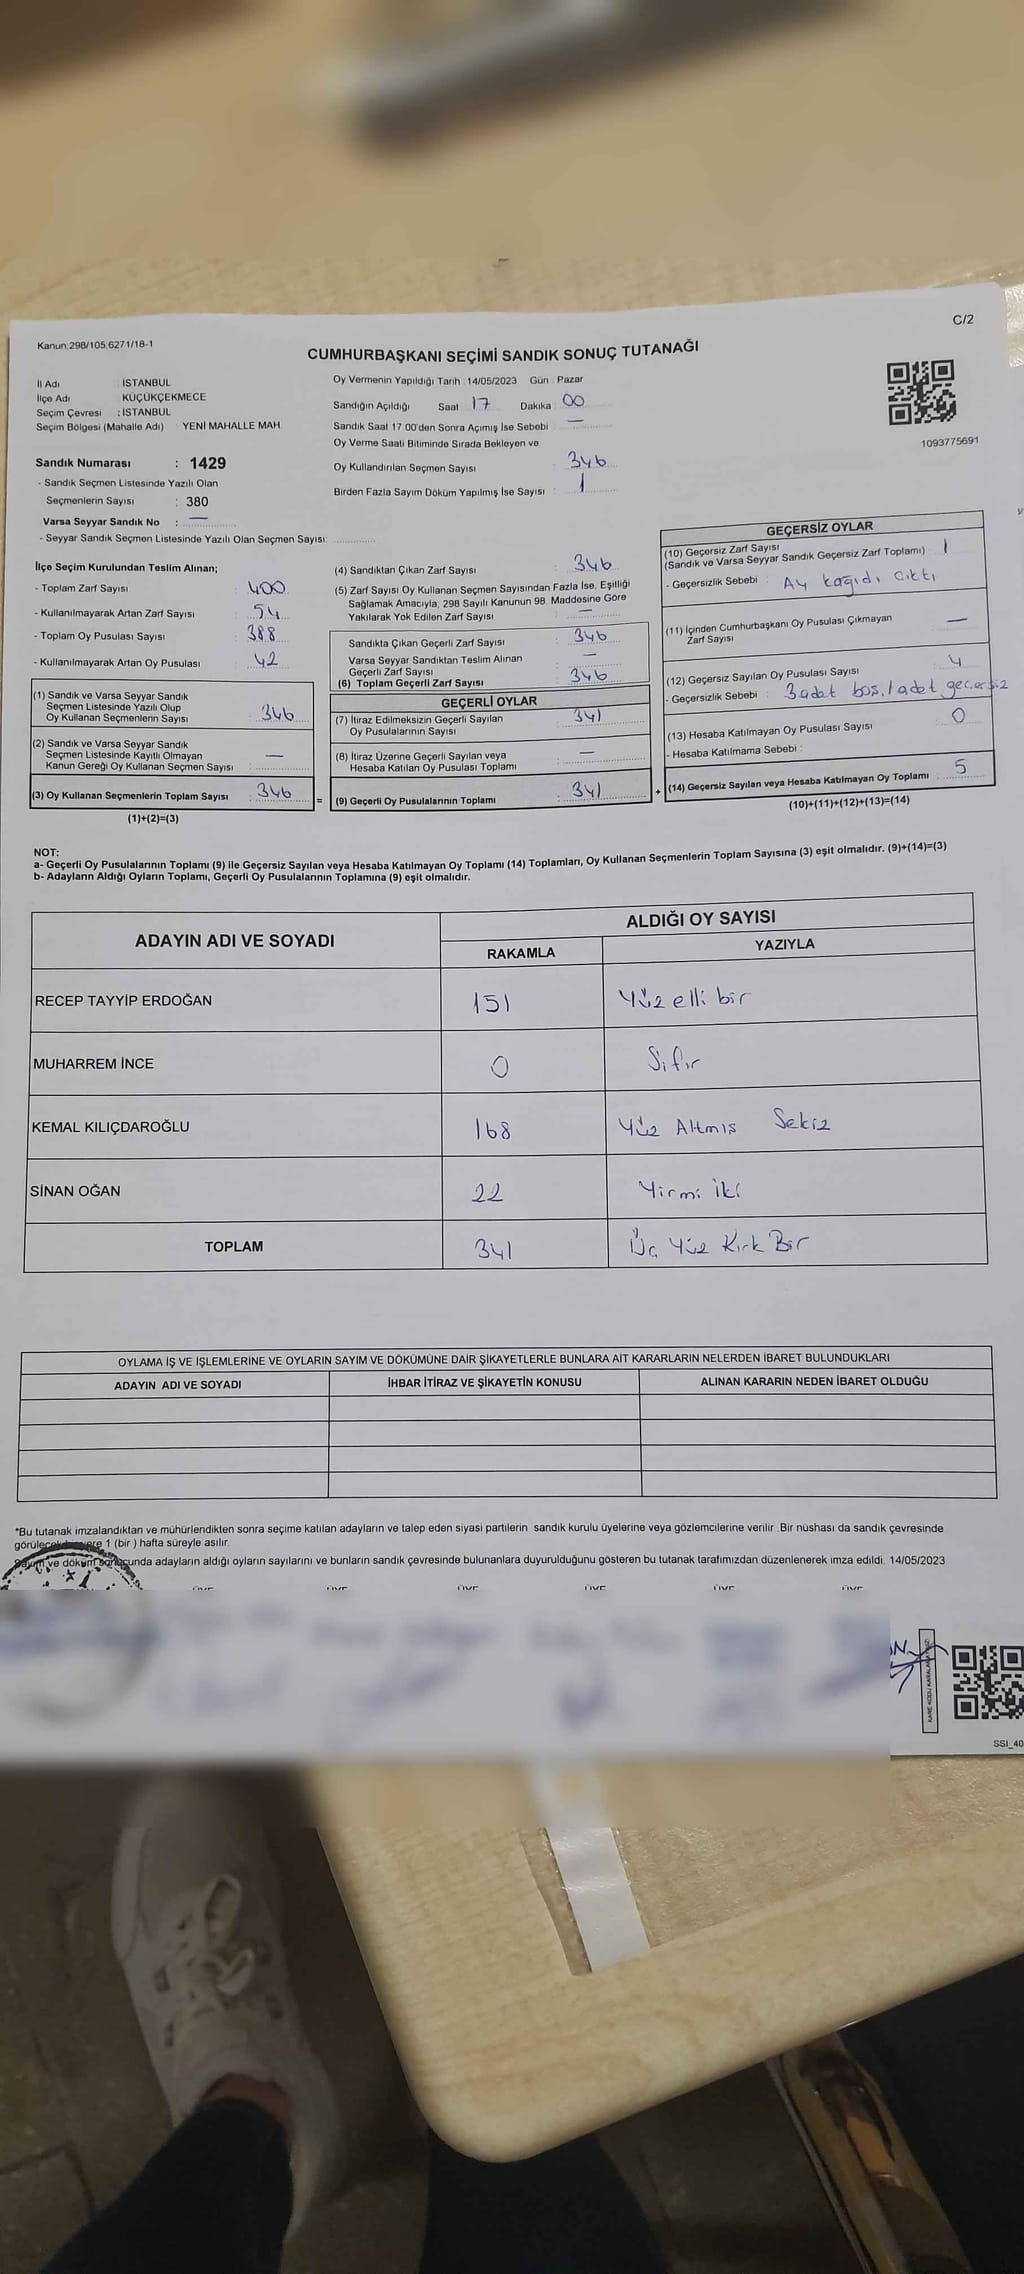 C/2
Kanun:298/105,6271/18-1
CUMHURBAŞKANI SEÇİMİ SANDIK SONUÇ TUTANAĞI
İl Adı : İSTANBUL
İlçe Adı : KÜÇÜKÇEKMECE
Seçim Çevresi : İSTANBUL
Seçim Bölgesi (Mahalle Adı) YENİ MAHALLE MAH.
Sandık Numarası : 1429
- Sandık Seçmen Listesinde Yazılı Olan
Seçmenlerin Sayısı : 380
Varsa Seyyar Sandık No : —
- Seyyar Sandık Seçmen Listesinde Yazılı Olan Seçmen Sayısı:
Oy Vermenin Yapıldığı Tarih : 14/05/2023 Gün : Pazar
Sandığın Açıldığı Saat 17 Dakika 00
Sandık Saat 17:00'den Sonra Açımış İse Sebebi : —
Oy Verme Saati Bitiminde Sırada Bekleyen ve
Oy Kullandırılan Seçmen Sayısı : 346
Birden Fazla Sayım Döküm Yapılmış İse Sayısı : 1
1093775691
İlçe Seçim Kurulundan Teslim Alınan;
- Toplam Zarf Sayısı : 400
- Kullanılmayarak Artan Zarf Sayısı : 54
- Toplam Oy Pusulası Sayısı : 388
- Kullanılmayarak Artan Oy Pusulası : 42
(1) Sandık ve Varsa Seyyar Sandık
Seçmen Listesinde Yazılı Olup
Oy Kullanan Seçmenlerin Sayısı : 346
(2) Sandık ve Varsa Seyyar Sandık
Seçmen Listesinde Kayıtlı Olmayan
Kanun Gereği Oy Kullanan Seçmen Sayısı : —
(3) Oy Kullanan Seçmenlerin Toplam Sayısı : 346
(1)+(2)=(3)
(4) Sandıktan Çıkan Zarf Sayısı : 346
(5) Zarf Sayısı Oy Kullanan Seçmen Sayısından Fazla İse, Eşitliği
Sağlamak Amacıyla; 298 Sayılı Kanunun 98. Maddesine Göre
Yakılarak Yok Edilen Zarf Sayısı : —
Sandıkta Çıkan Geçerli Zarf Sayısı : 346
Varsa Seyyar Sandıktan Teslim Alınan
Geçerli Zarf Sayısı : —
(6) Toplam Geçerli Zarf Sayısı : 346
GEÇERLİ OYLAR
(7) İtiraz Edilmeksizin Geçerli Sayılan
Oy Pusulalarının Sayısı : 341
(8) İtiraz Üzerine Geçerli Sayılan veya
Hesaba Katılan Oy Pusulası Toplamı : —
= (9) Geçerli Oy Pusulalarının Toplamı : 341
GEÇERSİZ OYLAR
(10) Geçersiz Zarf Sayısı
(Sandık ve Varsa Seyyar Sandık Geçersiz Zarf Toplamı) : 1
- Geçersizlik Sebebi : Ay kağıdı çıktı
(11) İçinden Cumhurbaşkanı Oy Pusulası Çıkmayan
Zarf Sayısı —
(12) Geçersiz Sayılan Oy Pusulası Sayısı : 4
- Geçersizlik Sebebi : 3 adet boş, 1 adet geçersiz
(13) Hesaba Katılmayan Oy Pusulası Sayısı : 0
- Hesaba Katılmama Sebebi :
+ (14) Geçersiz Sayılan veya Hesaba Katılmayan Oy Toplamı : 5
(10)+(11)+(12)+(13)=(14)
NOT:
a- Geçerli Oy Pusulalarının Toplamı (9) ile Geçersiz Sayılan veya Hesaba Katılmayan Oy Toplamı (14) Toplamları, Oy Kullanan Seçmenlerin Toplam Sayısına (3) eşit olmalıdır. (9)+(14)=(3)
b- Adayların Aldığı Oyların Toplamı, Geçerli Oy Pusulalarının Toplamına (9) eşit olmalıdır.
ADAYIN ADI VE SOYADI
ALDIĞI OY SAYISI
RAKAMLA YAZIYLA
RECEP TAYYİP ERDOĞAN 151 Yüz elli bir
MUHARREM İNCE 0 Sıfır
KEMAL KILIÇDAROĞLU 168 Yüz Altmış Sekiz
SİNAN OĞAN 22 Yirmi iki
TOPLAM 341 Üç Yüz Kırk Bir
OYLAMA İŞ VE İŞLEMLERİNE VE OYLARIN SAYIM VE DÖKÜMÜNE DAİR ŞİKAYETLERLE BUNLARA AİT KARARLARIN NELERDEN İBARET BULUNDUKLARI
ADAYIN ADI VE SOYADI İHBAR İTİRAZ VE ŞİKAYETİN KONUSU ALINAN KARARIN NEDEN İBARET OLDUĞU
*Bu tutanak imzalandıktan ve mühürlendikten sonra seçime katılan adayların ve talep eden siyasi partilerin sandık kurulu üyelerine veya gözlemcilerine verilir. Bir nüshası da sandık çevresinde
görülecek bir yere 1 (bir ) hafta süreyle asılır.
Sayım ve döküm sonucunda adayların aldığı oyların sayılarını ve bunların sandık çevresinde bulunanlara duyurulduğunu gösteren bu tutanak tarafımızdan düzenlenerek imza edildi. 14/05/2023
ÜYE ÜYE ÜYE ÜYE ÜYE ÜYE
SSI_40